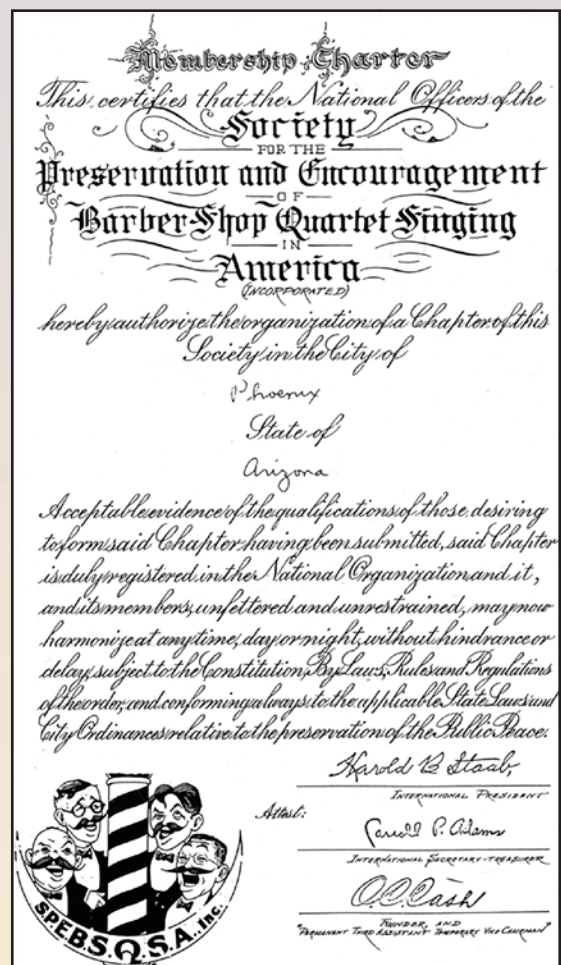 Membership Charter
This certifies that the National Officers of the
Society
FOR THE
Preservation and Encouragement
OF
Barber-Shop Quartet Singing
IN
America
(INCORPORATED)
hereby authorize the organization of a Chapter of this
Society in the City of
Phoenix
State of
Arizona
Acceptable evidence of the qualifications of those desiring
to form said Chapter having been submitted, said Chapter
is duly registered in the National Organization and it,
and its members, unfettered and unrestrained, may now
harmonize at any time, day or night, without hindrance or
delay, subject to the Constitution, By Laws, Rules and Regulations
of the order, and conforming always to the applicable State Laws and
City Ordinances relative to the preservation of the Public Peace.
Harold B Staab,
INTERNATIONAL PRESIDENT
Attest:
Carroll P. Adams
INTERNATIONAL SECRETARY-TREASURER
O.C. Cash
FOUNDER, AND
"PERMANENT THIRD ASSISTANT TEMPORARY VICE CHAIRMAN"
S.P.E.B.S.Q.S.A., Inc.